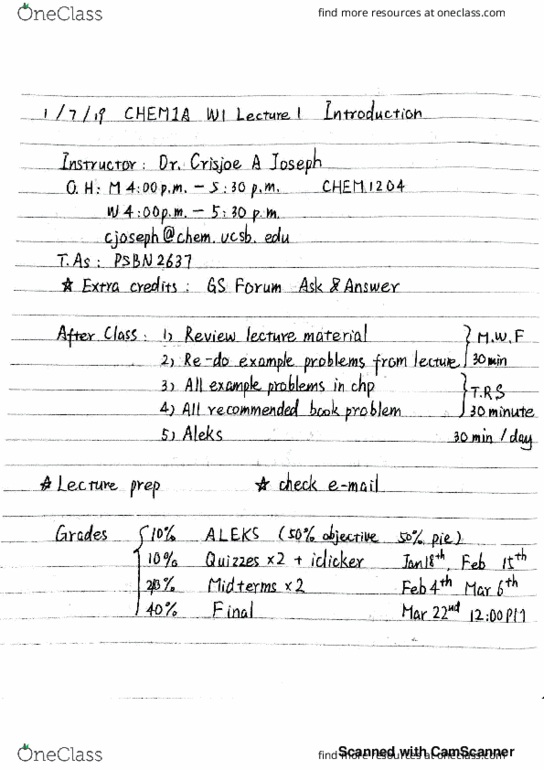 OneClass
find more resources at oneclass.com
1/7/19 CHEM1A W1 Lecture 1 Introduction
Instructor: Dr. Crisjoe A Joseph
O.H: M 4:00p.m. - 5:30 p.m. CHEM.1204
W 4:00p.m. - 5:30 p.m.
cjoseph@chem.ucsb.edu
T.As: PSBN 2637
☆ Extra credits: GS Forum Ask & Answer
After Class: 1) Review lecture material M.W.F
2) Re-do example problems from lecture 30 min
3) All example problems in chp T.R.S
4) All recommended book problem 30 minute
5) Aleks 30 min / day
☆ Lecture prep ☆ check e-mail
Grades 10% ALEKS (50% objective 50% pie)
10% Quizzes x2 + iclicker Jan 18th, Feb 15th
Midterms x2 Feb 4th Mar 6th
40% Final Mar 22nd 12:00PM
OneClass
find more resources at oneclass.com
Scanned with CamScanner